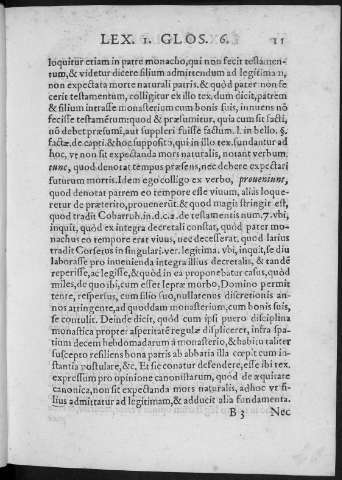 LEX. 1. GLOS. 6. 11
loquitur etiam in patre monacho, qui non fecit testamen-
tum, & videtur dicere filium admittendum ad legitimam,
non expectata morte naturali patris. & quòd pater non fe
cerit testamentum, colligitur ex illo tex. dum dicit, patrem
& filium intrasse monasterium cum bonis suis, innuens nõ
fecisse testamẽtum: quod & præsumitur, quia cum sit facti,
nõ debet præsumi, aut suppleri fuisse factum. l. in bello. §.
factæ. de capti. & hoc supposito, qui in illo tex. fundantur ad
hoc, vt non sit expectanda mors naturalis, notant verbum
tunc, quod denotat tempus præsens, nec debere expectari
futurum mortis. Idem ego colligo ex verbo, proueniunt,
quod denotat patrem eo tempore esse viuum, aliàs loque-
retur de præterito, prouenerũt. & quod magis stringit est,
quod tradit Cobarrub. in. d. c. 2. de testamentis num. 7. vbi,
inquit, quòd ex integra decretali constat, quòd pater mo-
nachus eo tempore erat viuus, nec decesserat. quod latius
tradit Corsetus in singulari. ver. legitima. vbi, inquit, se diu
laborasse pro inuenienda integra illius decretalis, & tandẽ
reperisse, ac legisse, & quòd in ea proponebatur casus, quòd
miles, de quo ibi, cum esset lepræ morbo, Domino permit
tente, respersus, cum filio suo, nullatenus discretionis an-
nos attingente, ad quoddam monasterium, cum bonis suis,
se contulit. Deinde dicit, quòd cum ipsi puero disciplina
monastica propter asperitatẽ regulæ displiceret, infra spa-
tium decem hebdomadarum à monasterio, & habitu taliter
suscepto resiliens bona patris ab abbatia illa cœpit cum in-
stantia postulare, &c. Et sic conatur defendere, esse ibi tex.
expressum pro opinione canonistarum, quòd de æquitate
canonica, non sit expectanda mors naturalis, adhoc vt fi-
lius admittatur ad legitimam, & adducit alia fundamenta.
B 3 Nec